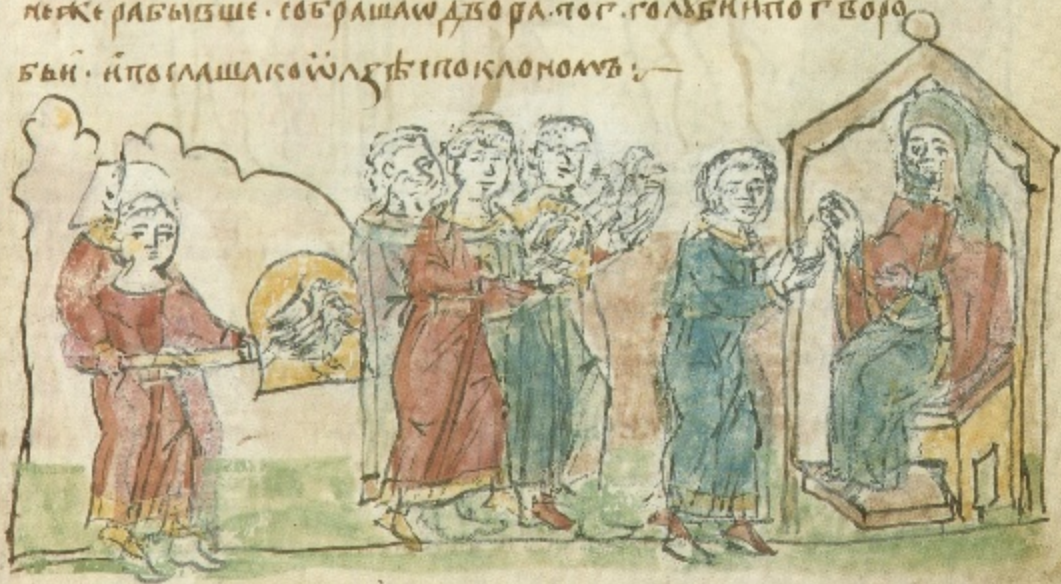 не же ра бывше · собраша ѿ двора · по г · голуби и по г воро
бьи · и послаша ко ѡлзѣ с поклономъ :~